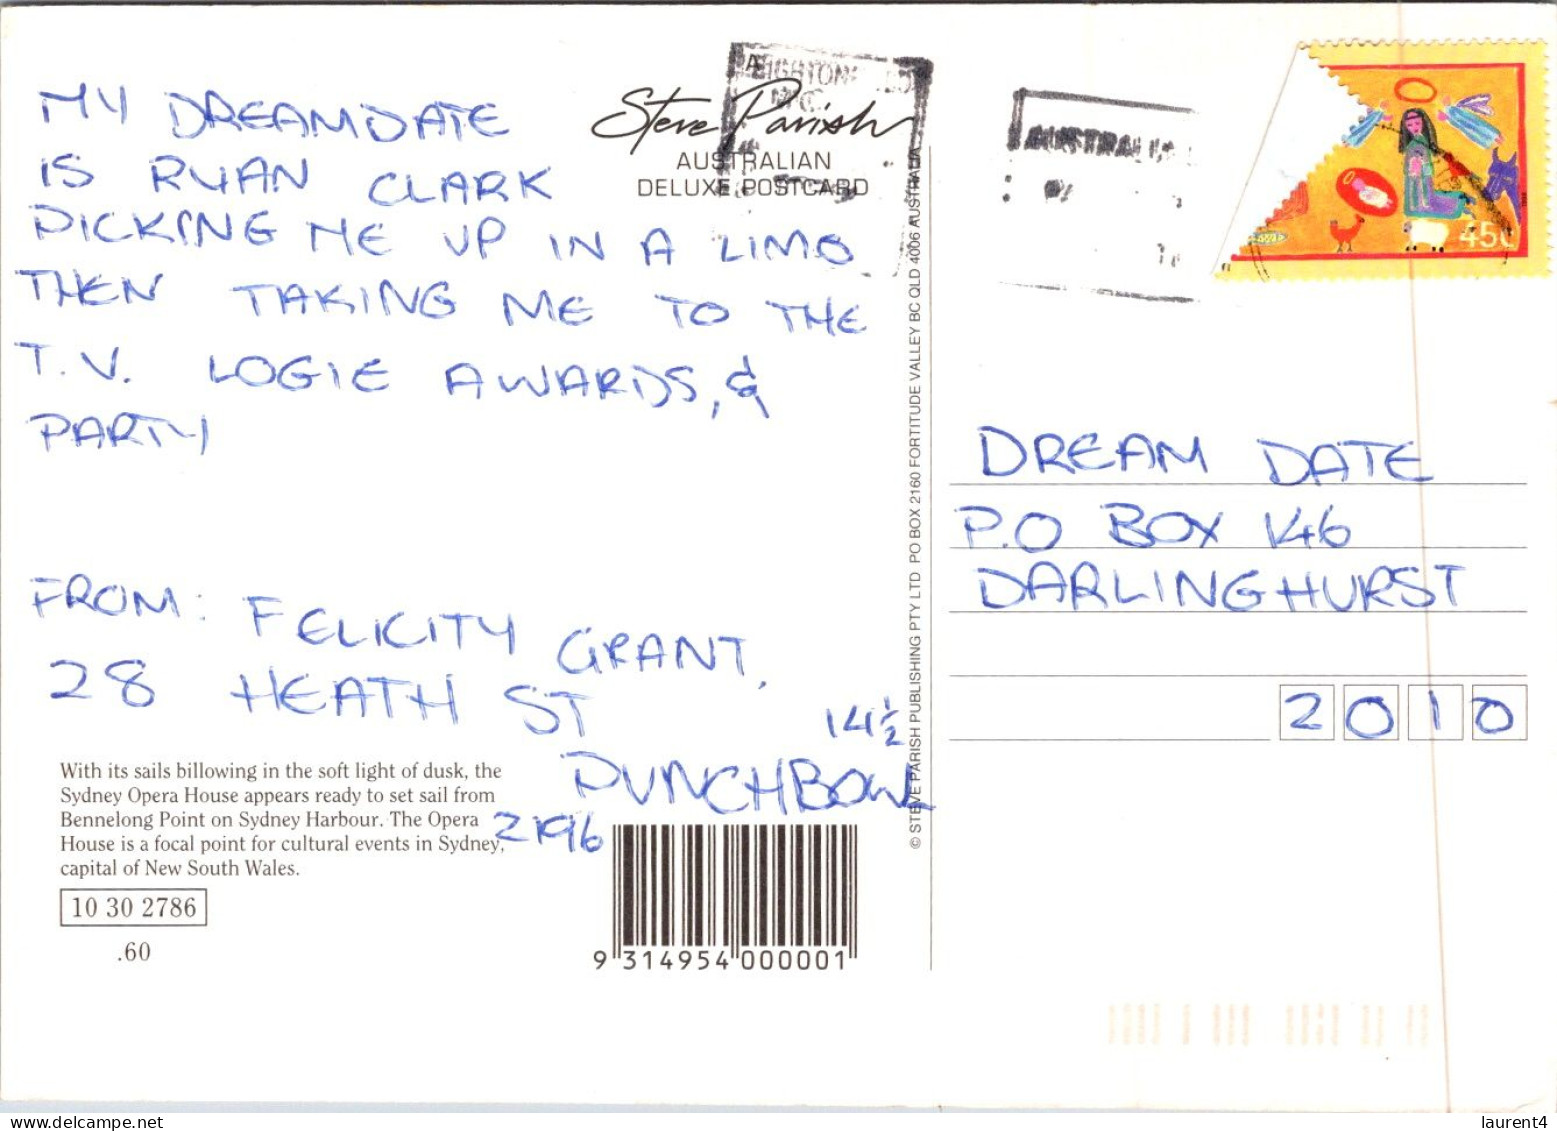 MY DREAMDATE
IS RYAN CLARK
PICKING ME UP IN A LIMO
THEN TAKING ME TO THE
T.V. LOGIE AWARDS, &
PARTY
FROM: FELICITY GRANT,
28 HEATH ST
14½
PUNCHBOWL
2196
With its sails billowing in the soft light of dusk, the
Sydney Opera House appears ready to set sail from
Bennelong Point on Sydney Harbour. The Opera
House is a focal point for cultural events in Sydney,
capital of New South Wales.
10 30 2786
.60
9 314954 000001
Steve Parish
AUSTRALIAN
DELUXE POSTCARD
© STEVE PARISH PUBLISHING PTY LTD PO BOX 2160 FORTITUDE VALLEY BC QLD 4006 AUSTRALIA
AUSTRALIA
45c
DREAM DATE
P.O BOX K46
DARLINGHURST
2010
www.delcampe.net
laurent4